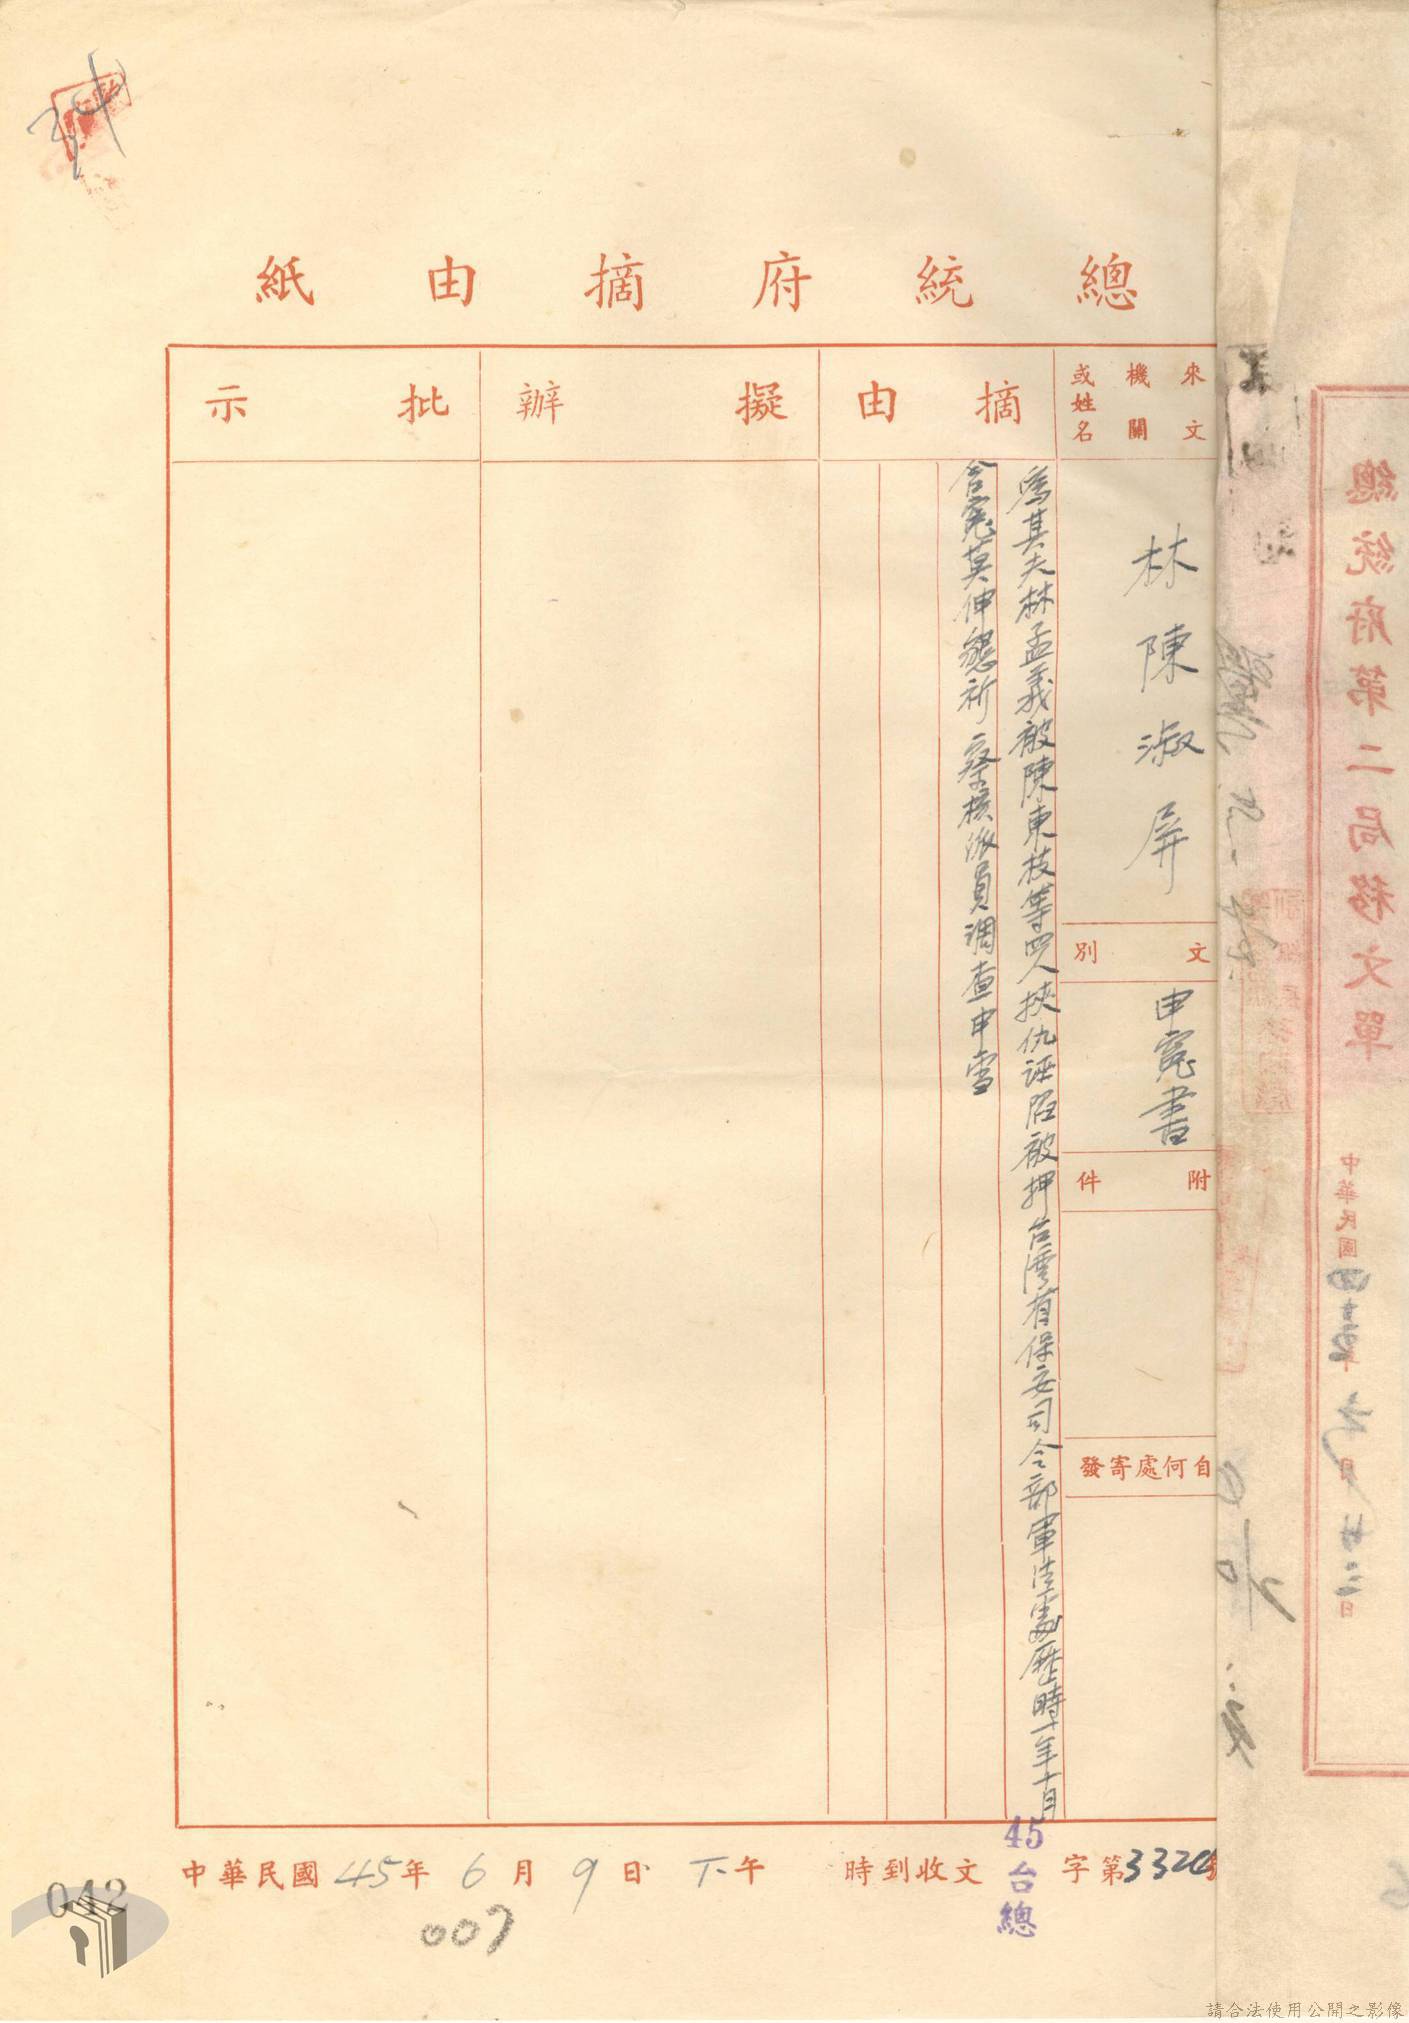 總統府摘由紙
來文機關或姓名
林陳淑屏
文別
申寃書
附件
自何處寄發
摘由
為其夫林孟義被陳東枝等四人挾仇誣陷被押台灣省保安司令部軍法處歷時一年十月
含寃莫伸懇祈 察核派員調查申雪
擬辦
批示
中華民國45年6月9日下午 時到收文 45台總 字第3320
007
042
34
總統府第二局移文單
中華民國四十五年六月廿三日
請合法使用公開之影像